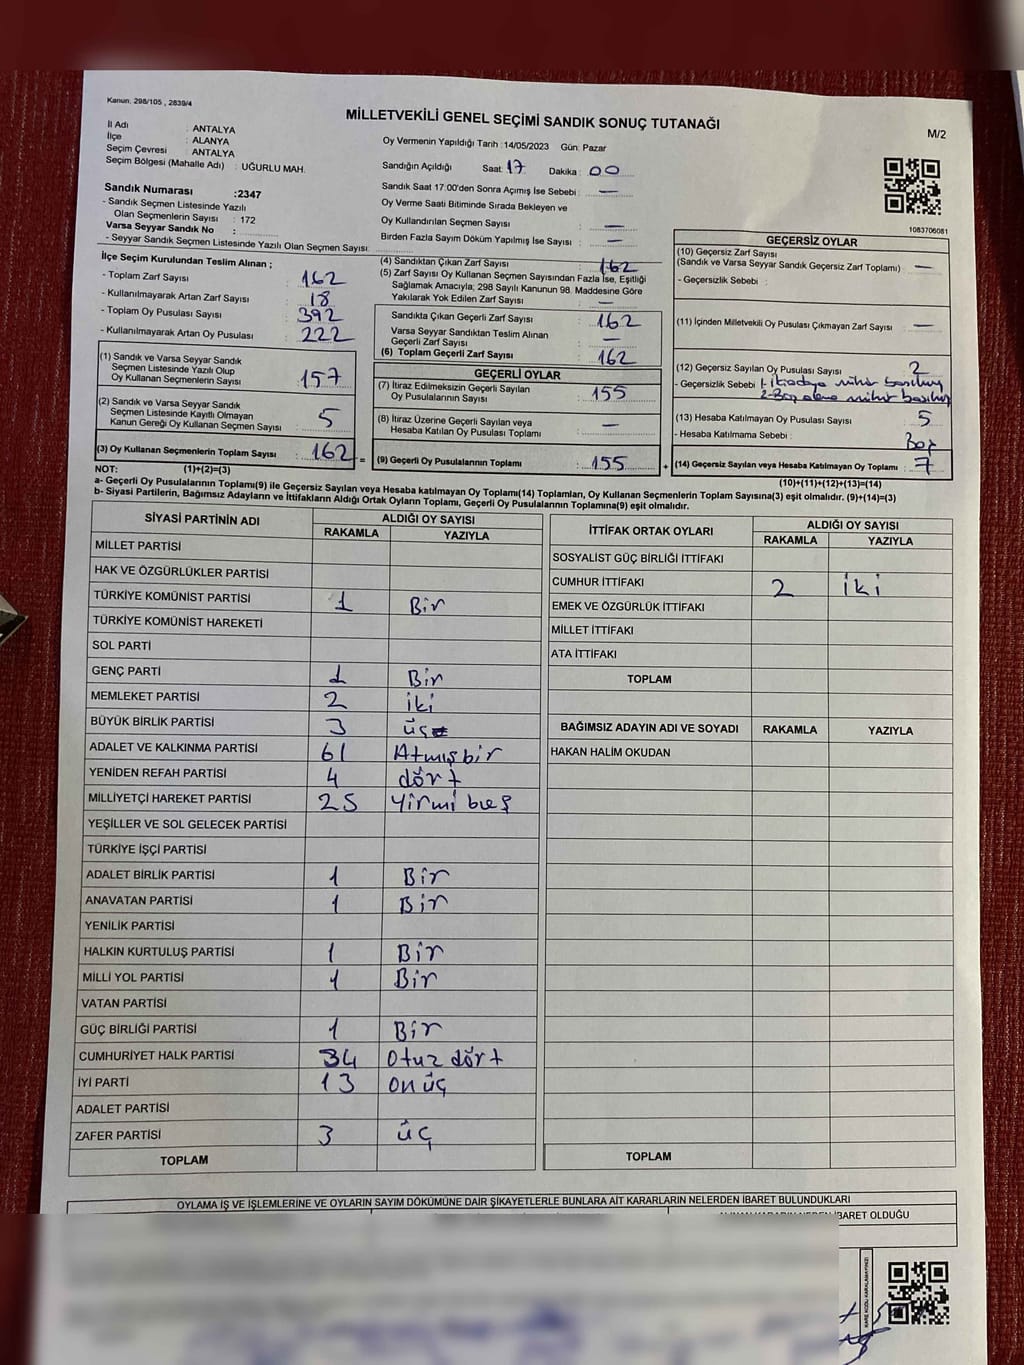 Kanun: 298/105 , 2839/4
MİLLETVEKİLİ GENEL SEÇİMİ SANDIK SONUÇ TUTANAĞI
M/2
İl Adı : ANTALYA
İlçe : ALANYA
Seçim Çevresi : ANTALYA
Seçim Bölgesi (Mahalle Adı) : UĞURLU MAH.
Oy Vermenin Yapıldığı Tarih : 14/05/2023 Gün: Pazar
Sandığın Açıldığı Saat: 17 Dakika: 00
Sandık Saat 17:00'den Sonra Açılmış İse Sebebi : —
Oy Verme Saati Bitiminde Sırada Bekleyen ve
Oy Kullandırılan Seçmen Sayısı : —
Birden Fazla Sayım Döküm Yapılmış İse Sayısı : —
1083706081
Sandık Numarası :2347
- Sandık Seçmen Listesinde Yazılı
Olan Seçmenlerin Sayısı : 172
Varsa Seyyar Sandık No :
- Seyyar Sandık Seçmen Listesinde Yazılı Olan Seçmen Sayısı:
İlçe Seçim Kurulundan Teslim Alınan ;
- Toplam Zarf Sayısı : 162
- Kullanılmayarak Artan Zarf Sayısı : 18
- Toplam Oy Pusulası Sayısı : 392
- Kullanılmayarak Artan Oy Pusulası : 222
(1) Sandık ve Varsa Seyyar Sandık
Seçmen Listesinde Yazılı Olup
Oy Kullanan Seçmenlerin Sayısı : 157
(2) Sandık ve Varsa Seyyar Sandık
Seçmen Listesinde Kayıtlı Olmayan
Kanun Gereği Oy Kullanan Seçmen Sayısı : 5
(3) Oy Kullanan Seçmenlerin Toplam Sayısı : 162 =
(4) Sandıktan Çıkan Zarf Sayısı : 162
(5) Zarf Sayısı Oy Kullanan Seçmen Sayısından Fazla İse, Eşitliği
Sağlamak Amacıyla; 298 Sayılı Kanunun 98. Maddesine Göre
Yakılarak Yok Edilen Zarf Sayısı : —
Sandıkta Çıkan Geçerli Zarf Sayısı : 162
Varsa Seyyar Sandıktan Teslim Alınan
Geçerli Zarf Sayısı : —
(6) Toplam Geçerli Zarf Sayısı : 162
GEÇERLİ OYLAR
(7) İtiraz Edilmeksizin Geçerli Sayılan
Oy Pusulalarının Sayısı : 155
(8) İtiraz Üzerine Geçerli Sayılan veya
Hesaba Katılan Oy Pusulası Toplamı : —
(9) Geçerli Oy Pusulalarının Toplamı : 155 +
GEÇERSİZ OYLAR
(10) Geçersiz Zarf Sayısı
(Sandık ve Varsa Seyyar Sandık Geçersiz Zarf Toplamı) : —
- Geçersizlik Sebebi :
(11) İçinden Milletvekili Oy Pusulası Çıkmayan Zarf Sayısı : —
(12) Geçersiz Sayılan Oy Pusulası Sayısı : 2
- Geçersizlik Sebebi : 1- mühür
2- mühür
(13) Hesaba Katılmayan Oy Pusulası Sayısı : 5
- Hesaba Katılmama Sebebi : Boş
(14) Geçersiz Sayılan veya Hesaba Katılmayan Oy Toplamı : 7
NOT: (1)+(2)=(3) (10)+(11)+(12)+(13)=(14)
a- Geçerli Oy Pusulalarının Toplamı(9) ile Geçersiz Sayılan veya Hesaba katılmayan Oy Toplamı(14) Toplamları, Oy Kullanan Seçmenlerin Toplam Sayısına(3) eşit olmalıdır. (9)+(14)=(3)
b- Siyasi Partilerin, Bağımsız Adayların ve İttifakların Aldığı Ortak Oyların Toplamı, Geçerli Oy Pusulalarının Toplamına(9) eşit olmalıdır.
SİYASİ PARTİNİN ADI ALDIĞI OY SAYISI
RAKAMLA YAZIYLA
MİLLET PARTİSİ
HAK VE ÖZGÜRLÜKLER PARTİSİ
TÜRKİYE KOMÜNİST PARTİSİ 1 Bir
TÜRKİYE KOMÜNİST HAREKETİ
SOL PARTİ
GENÇ PARTİ 1 Bir
MEMLEKET PARTİSİ 2 iki
BÜYÜK BİRLİK PARTİSİ 3 üç
ADALET VE KALKINMA PARTİSİ 61 Atmışbir
YENİDEN REFAH PARTİSİ 4 dört
MİLLİYETÇİ HAREKET PARTİSİ 25 Yirmi beş
YEŞİLLER VE SOL GELECEK PARTİSİ
TÜRKİYE İŞÇİ PARTİSİ
ADALET BİRLİK PARTİSİ 1 Bir
ANAVATAN PARTİSİ 1 Bir
YENİLİK PARTİSİ
HALKIN KURTULUŞ PARTİSİ 1 Bir
MİLLİ YOL PARTİSİ 1 Bir
VATAN PARTİSİ
GÜÇ BİRLİĞİ PARTİSİ 1 Bir
CUMHURİYET HALK PARTİSİ 34 Otuz dört
İYİ PARTİ 13 on üç
ADALET PARTİSİ
ZAFER PARTİSİ 3 üç
TOPLAM
İTTİFAK ORTAK OYLARI ALDIĞI OY SAYISI
RAKAMLA YAZIYLA
SOSYALİST GÜÇ BİRLİĞİ İTTİFAKI
CUMHUR İTTİFAKI 2 iki
EMEK VE ÖZGÜRLÜK İTTİFAKI
MİLLET İTTİFAKI
ATA İTTİFAKI
TOPLAM
BAĞIMSIZ ADAYIN ADI VE SOYADI RAKAMLA YAZIYLA
HAKAN HALİM OKUDAN
TOPLAM
OYLAMA İŞ VE İŞLEMLERİNE VE OYLARIN SAYIM DÖKÜMÜNE DAİR ŞİKAYETLERLE BUNLARA AİT KARARLARIN NELERDEN İBARET BULUNDUKLARI
İBARET OLDUĞU
KARE KODU KARALAMAYINIZ!